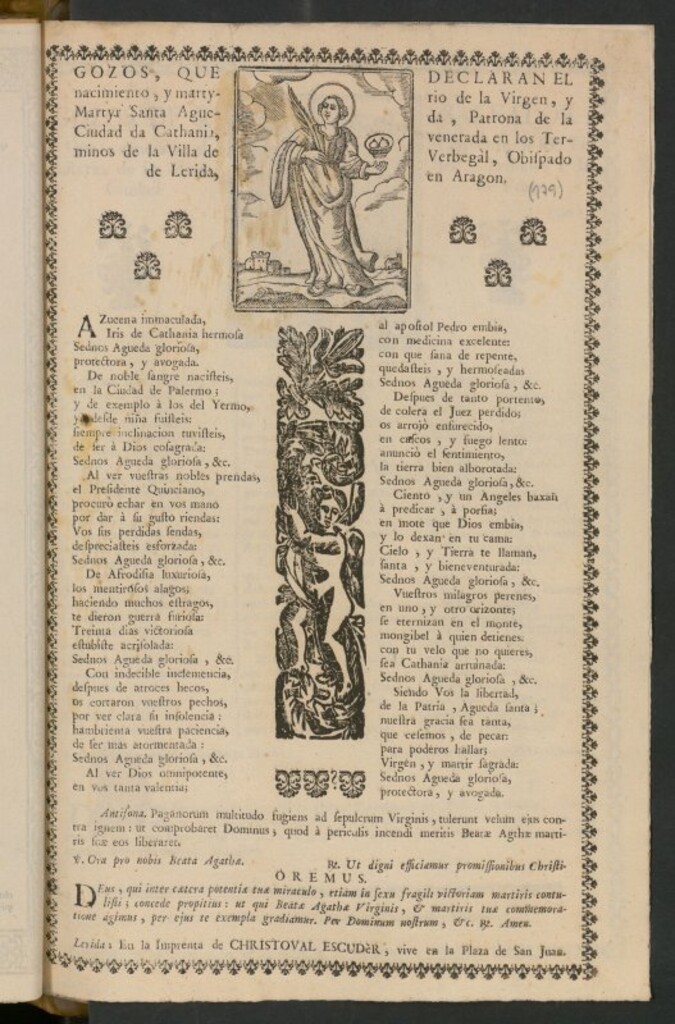 GOZOS, QUE DECLARAN EL
nacimiento, y marty- rio de la Virgen, y
Martyr Santa Ague- da, Patrona de la
Ciudad da Cathania, venerada en los Ter-
minos de la Villa de Verbegàl, Obiſpado
de Lerida, en Aragon.
(179)
AZucena inmaculada,
Iris de Cathania hermoſa
Sednos Agueda glorioſa,
protectora, y avogada.
De noble ſangre naciſteis,
en la Ciudad de Palermo;
y de exemplo à los del Yermo,
y deſde niña fuiſteis:
ſiempre inclinacion tuviſteis,
de ſer à Dios coſagrada:
Sednos Agueda glorioſa, &c.
Al ver vueſtras nobles prendas,
el Preſidente Quinciano,
procurò echar en vos mano
por dar à ſu guſto riendas:
Vos ſus perdidas ſendas,
deſpreciaſteis esforzada:
Sednos Agueda glorioſa, &c.
De Afrodiſia luxurioſa,
los mentiroſos alagos;
haciendo muchos eſtragos,
te dieron guerra furioſa:
Treinta dias victorioſa
eſtubiſte acriſolada:
Sednos Agueda glorioſa, &c.
Con indecible inclemencia,
deſpues de atroces hecos,
os cortaron vueſtros pechos,
por ver clara ſu inſolencia:
hambrienta vueſtra paciencia,
de ſer mas atormentada:
Sednos Agueda glorioſa, &c.
Al ver Dios omnipotente,
en vos tanta valentia;
al apoſtol Pedro embia,
con medicina excelente:
con que ſana de repente,
quedaſteis, y hermoſeadas
Sednos Agueda glorioſa, &c.
Deſpues de tanto portento,
de colera el Juez perdido;
os arrojò enfurecido,
en caſcos, y fuego lento:
anunciò el ſentimiento,
la tierra bien alborotada:
Sednos Agueda glorioſa, &c.
Ciento, y un Angeles baxan
à predicar, à porfia;
en mote que Dios embia,
y lo dexan en tu cama:
Cielo, y Tierra te llaman,
ſanta, y bieneventurada:
Sednos Agueda glorioſa, &c.
Vueſtros milagros perenes,
en uno, y otro orizonte;
ſe eternizan en el monte,
mongibel à quien detienes:
con tu velo que no quieres,
ſea Cathania arruinada:
Sednos Agueda glorioſa, &c.
Siendo Vos la libertad,
de la Patria, Agueda ſanta;
nueſtra gracia ſea tanta,
que ceſemos, de pecar:
para poderos hallar;
Virgen, y martir ſagrada:
Sednos Agueda glorioſa,
protectora, y avogada.
Antifona. Paganorum multitudo fugiens ad ſepulcrum Virginis, tulerunt velum ejus con-
tra ignem: ut comprobaret Dominus, quod à periculis incendi meritis Beatæ Agthæ marti-
ris ſuæ eos liberaret.
℣. Ora pro nobis Beata Agathæ. ℟. Ut digni efficiamur promiſſionibus Chriſti.
OREMUS.
DEus, qui inter cætera potentiæ tuæ miraculo, etiam in ſexu fragili victoriam martiris contu-
liſti; concede propitius: ut qui Beatæ Agathæ Virginis, & martiris tuæ commemora-
tione agimus, per ejus te exempla gradiamur. Per Dominum noſtrum, &c. ℟. Amen.
Lerida: En la Imprenta de CHRISTOVAL ESCUDER, vive en la Plaza de San Juan.